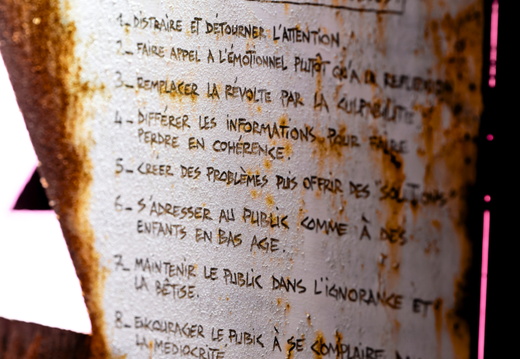 1_ DISTRAIRE ET DÉTOURNER L'ATTENTION.
2_ FAIRE APPEL A L'ÉMOTIONNEL PLUTÔT QU'A LA REFLEXION
3_ REMPLACER LA RÉVOLTE PAR LA CULPABILITÉ
4_ DIFFÉRER LES INFORMATIONS POUR FAIRE
PERDRE EN COHÉRENCE.
5_ CRÉER DES PROBLÈMES PUIS OFFRIR DES "SOLUTIONS"
6_ S'ADRESSER AU PUBLIC COMME À DES
ENFANTS EN BAS AGE.
7_ MAINTENIR LE PUBLIC DANS L'IGNORANCE ET
LA BÊTISE.
8_ ENCOURAGER LE PUBLIC À SE COMPLAIRE
LA MEDIOCRITE